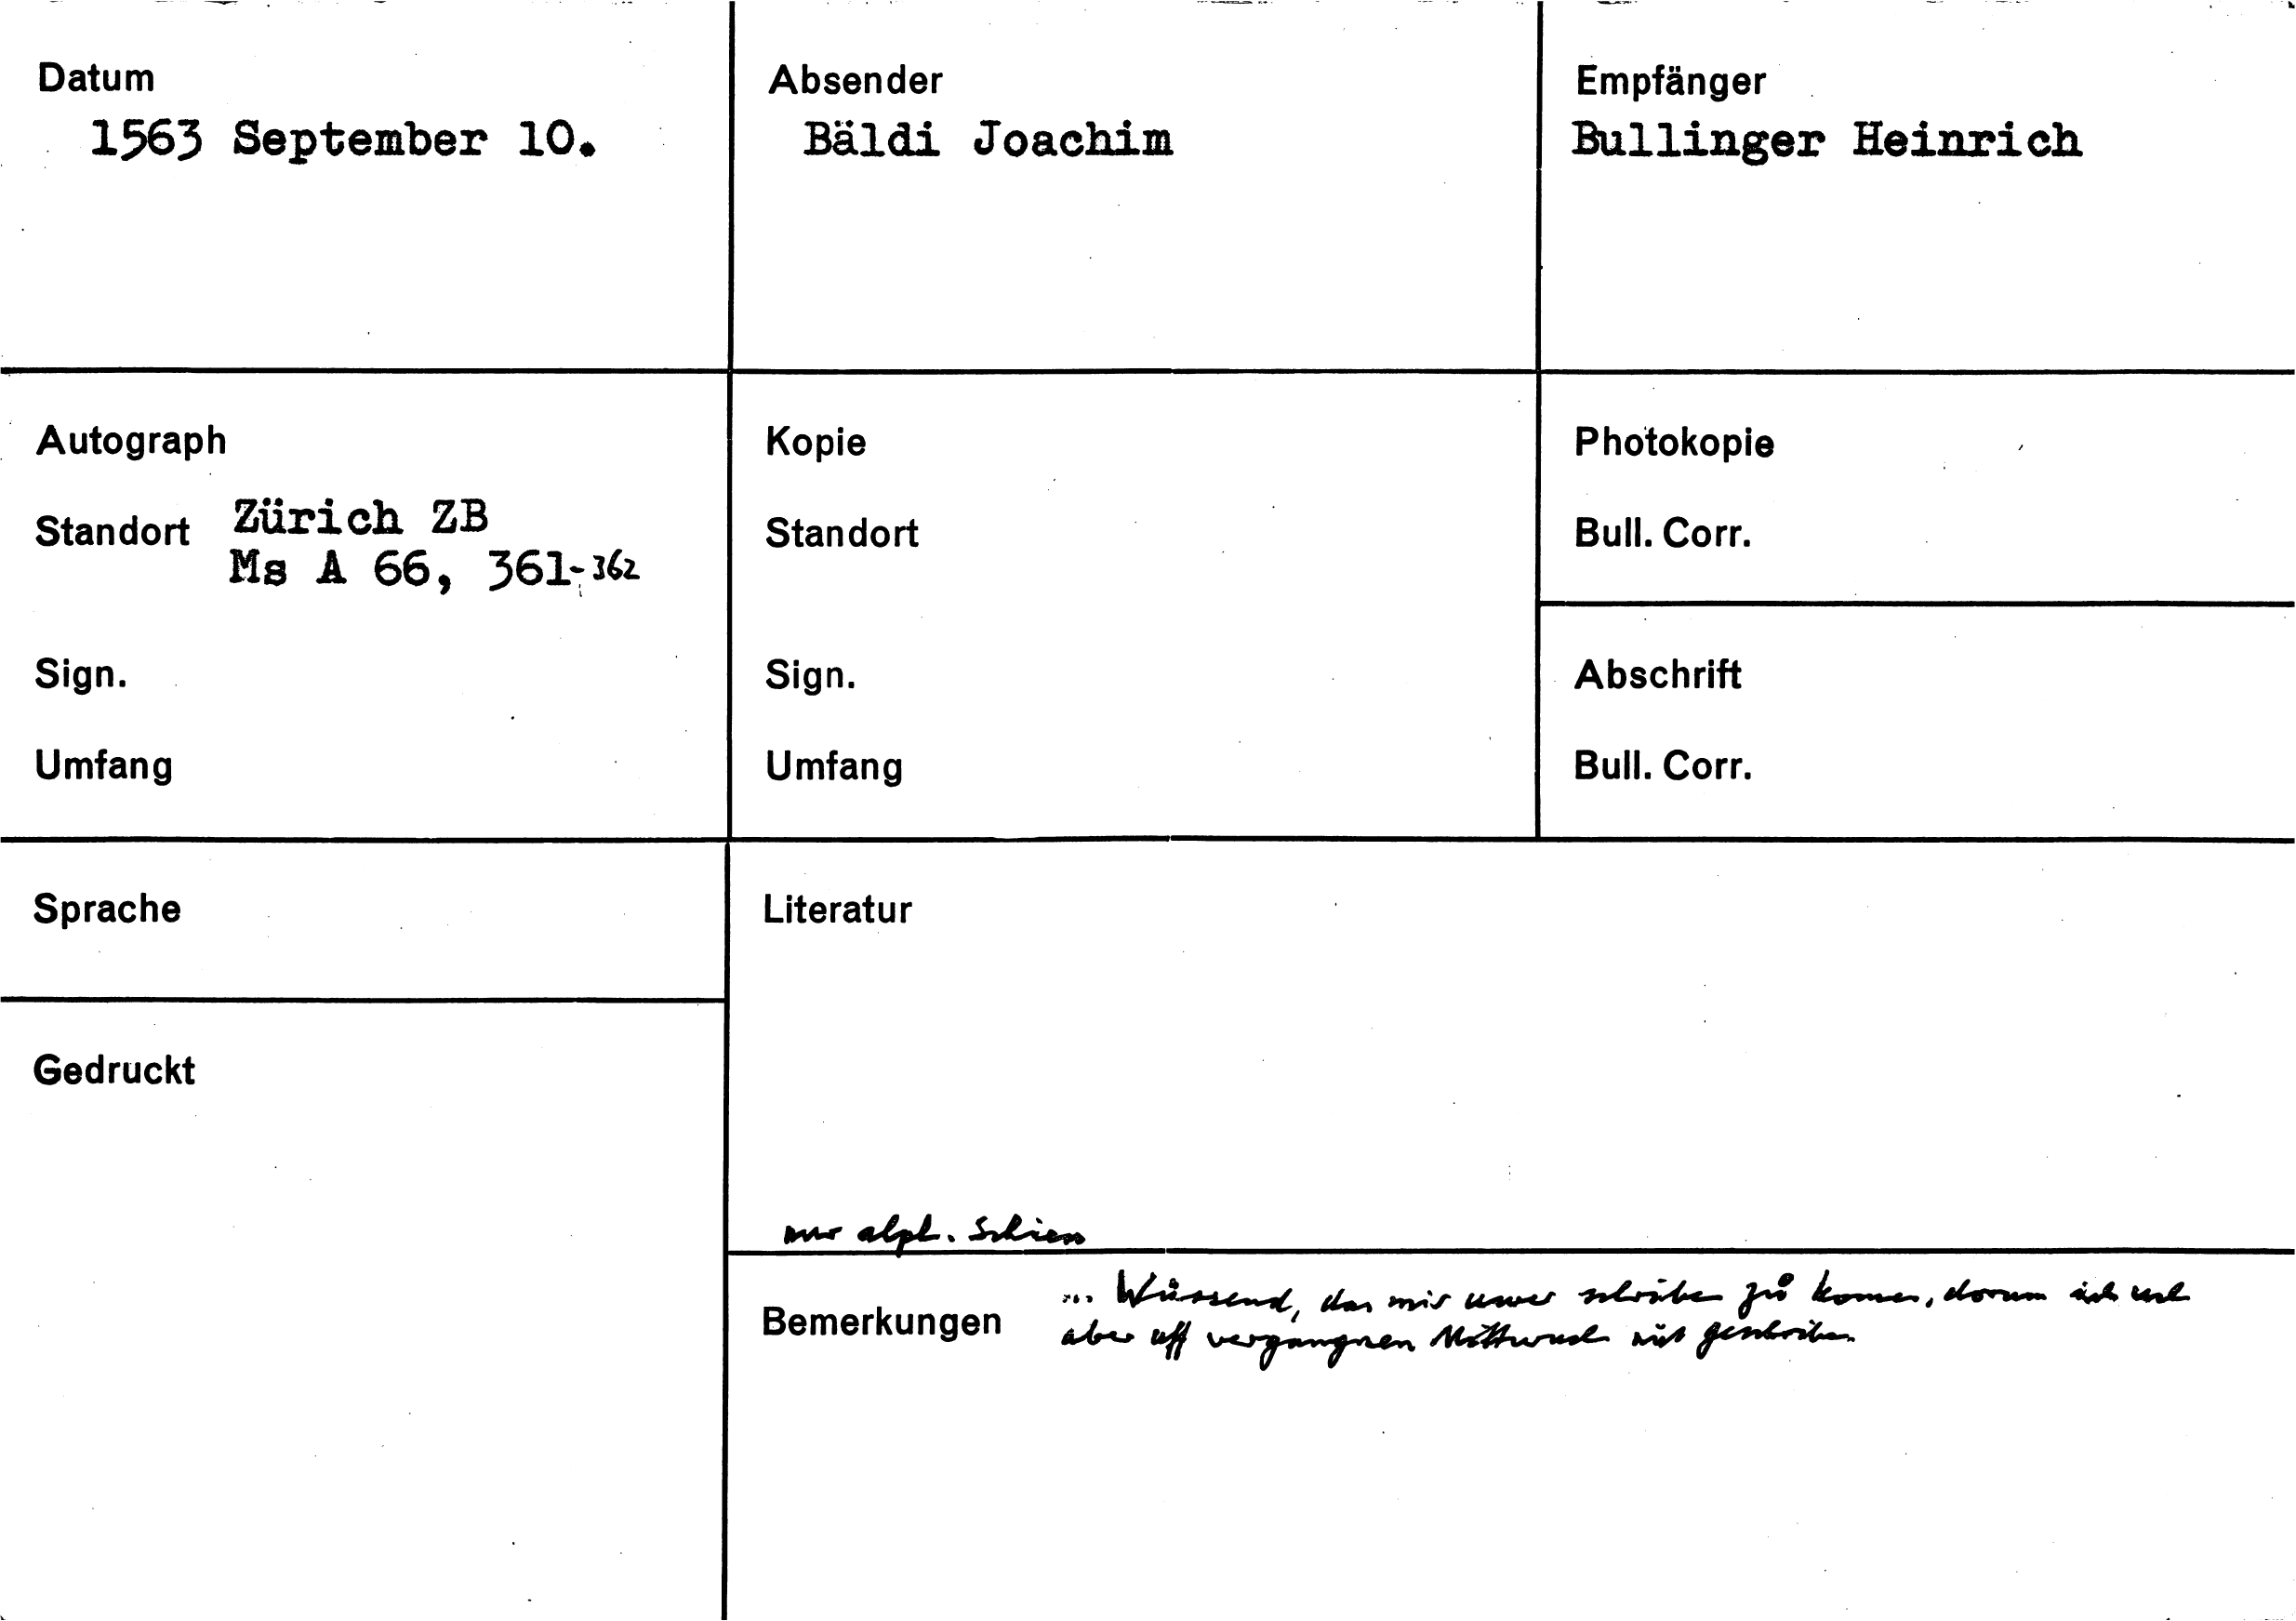 Datum
1563 September 10.
Absender
Bäldi Joachim
Empfänger
Bullinger Heinrich
Autograph
Standort Zürich ZB
Ms A 66, 361-362
Sign.
Umfang
Kopie
Standort
Sign.
Umfang
Photokopie
Bull. Corr.
Abschrift
Bull. Corr.
Sprache
Gedruckt
Literatur
nur alph. Schiess
Bemerkungen ... Wüssend, das mir uwer schriben zů komen, dorum ich uch
aber uff vergangnen Mittwuch nüt geschriben